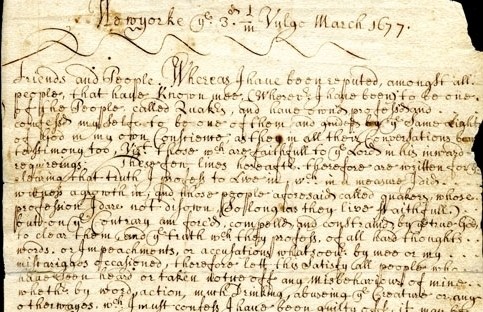 Newyorke ye 3d 1/m Vulgo March 1677.
Friends and People, Whereas I have been reputed, amongst all
people, that have Known mee, Where I have been to be one
of the People called Quakers, and have owned, professed and
confess my selfe to be one of them and guided by ye same Light
of God in my own Conscience, as they in all their Conversations
testimony too, Viz: those wch are faithfull to ye Lord in his inward
requireings: These few lines hereafter therefore are written for
that truth I profess to Live in wch in a measure I did
a growth in, and those people aforesaid called Quakers, whose
profession I dare not disown, Soe long as they live faithfull)
but on ye Contrary am forced, compelled and constrained by ye true
to clear them and ye truth wch they profess, of all hard thoughts
words, or Impeachments, or accusations whatsoever by mee or my
miscariages occasioned, therefore lett this Satisfy all people who
have seen heard or taken notice off any misbehaviours of mine
whether by word, action, much Drinking, abuseing ye Creature or any
otherwayes, wch I must confess I have been guilty off, it may be